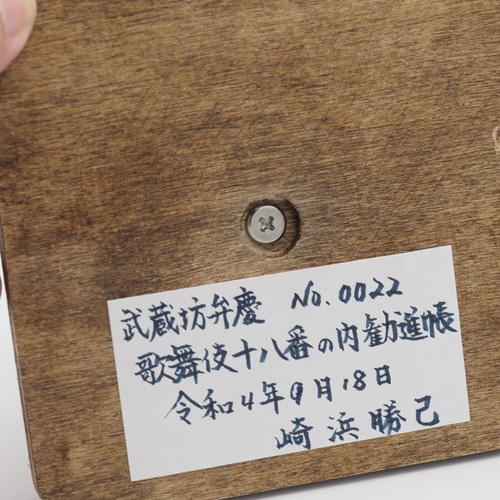 武蔵坊弁慶 No.0022
歌舞伎十八番の内勧進帳
令和4年9月18日
崎浜勝己